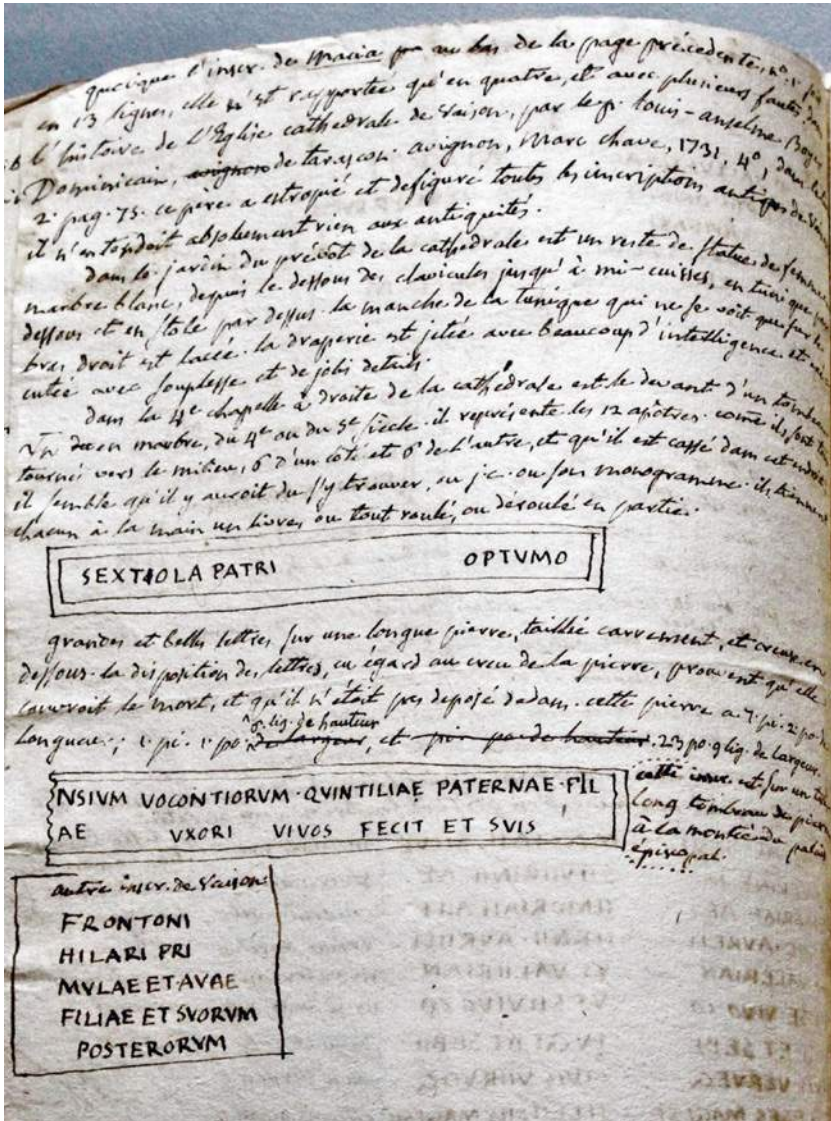 quoique l'inscr. de Macia au bas de la page precedente, n°. 1. soit
en 13 lignes, elle n'est rapportée qu'en quatre, et avec plusieurs fautes, dans
l'histoire de l'Eglise cathedrale de vaison, par le p. louis-anselme Boyer
Dominicain, avignon de tarascon. avignon, Marc chave, 1731, 4°, dans
2. pag. 75. ce pere a estropié et defiguré toutes les inscriptions antiques de vaison
il n'entendoit absolument rien aux antiquités.
dans le jardin du prévôt de la cathedrale est un reste de statue de femme
marbre blanc, depuis le dessous des clavicules jusqu'à mi-cuisses, en tunique par
dessous et en stole par dessus. la manche de la tunique qui ne se voit que sur le
bras droit est lacée. la draperie est jetée avec beaucoup d'intelligence et
cutée avec souplesse et de jolis details.
dans la 4e chapelle à droite de la cathédrale est le devant d'un tombeau
en marbre, du 4e ou du 5e siecle. il représente les 12 apôtres. come ils sont
tournés vers le milieu, 6 d'un coté et 6 de l'autre, et qu'il est cassé dans cet endroit
il semble qu'il y auroit du s'y trouver, ou j.c. ou son monogramme. ils tiennent
chacun à la main un livre, ou tout roulé, ou déroulé en partie.
SEXTIOLA PATRI OPTVMO
grandes et belles lettres sur une longue pierre, taillée carrement, et creuse en
dessous. la disposition des lettres, eu égard au creu de la pierre, prouvent qu'elle
couvroit le mort, et qu'il n'étoit pas deposé dedans. cette pierre a 7. pi. 2. po. de
longueur; 1. pi. 1. po. 8. lig. de hauteur de largeur, et 23 po. 9 lig. de largeur.
NSIVM VOCONTIORVM·QVINTILIAE PATERNAE·FIL
AE VXORI VIVOS FECIT ET SVIS
cette inscr. est sur un
long tombeau de pierre
à la montée du palais
épiscopal.
autre inscr. de vaison
FRONTONI
HILARI PRI
MVLAE ET AVAE
FILIAE ET SVORVM
POSTERORVM